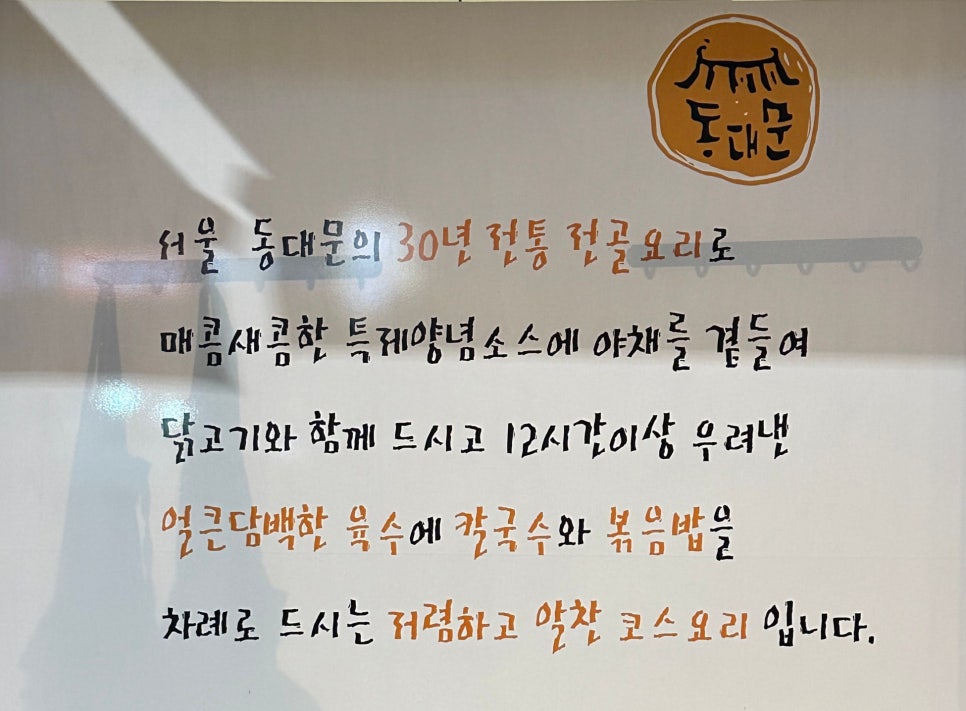 동대문
서울 동대문의 30년 전통 전골요리로
매콤새콤한 특제양념소스에 야채를 곁들여
닭고기와 함께 드시고 12시간이상 우려낸
얼큰담백한 육수에 칼국수와 볶음밥을
차례로 드시는 저렴하고 알찬 코스요리 입니다.